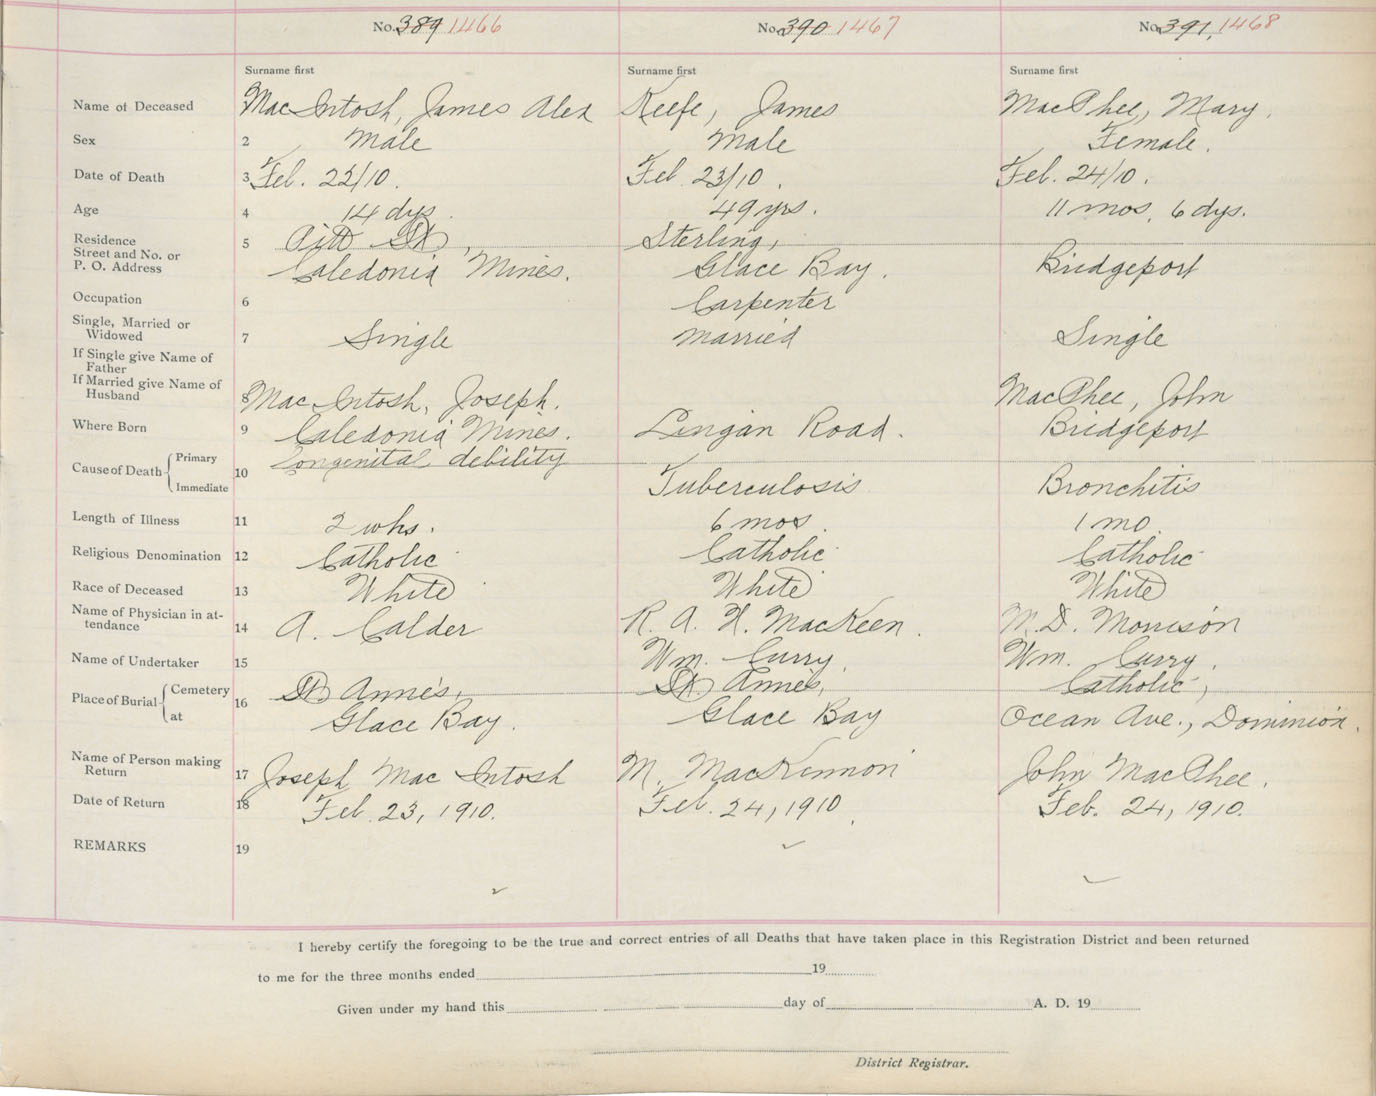 No. 389 1466 No. 390 1467 No. 391, 1468
Surname first Surname first Surname first
Name of Deceased MacIntosh, James Alex Keefe, James MacPhee, Mary.
Sex 2 Male Male Female.
Date of Death 3 Feb. 22/10. Feb. 23/10. Feb. 24/10.
Age 4 14 dys. 49 yrs. 11 mos, 6 dys.
Residence
Street and No. or 5 Pitt St, Sterling,
P. O. Address Caledonia Mines. Glace Bay. Bridgeport
Occupation 6 Carpenter
Single, Married or
Widowed 7 Single Married Single
If Single give Name of
Father
If Married give Name of
Husband 8 MacIntosh, Joseph. MacPhee, John
Where Born 9 Caledonia Mines. Lingan Road. Bridgeport
Cause of Death Primary Congenital debility
Immediate 10 Tuberculosis Bronchitis
Length of Illness 11 2 whs. 6 mos. 1 mo.
Religious Denomination 12 Catholic Catholic Catholic
Race of Deceased 13 White White White
Name of Physician in at-
tendance 14 A. Calder R. A. H. MacKeen. M. D. Morrison
Name of Undertaker 15 Wm. Curry. Wm. Curry.
Place of Burial Cemetery 16 St Anne's, St. Anne's, Catholic,
at Glace Bay. Glace Bay Ocean Ave., Dominion.
Name of Person making
Return 17 Joseph MacIntosh M. MacKinnon John MacPhee.
Date of Return 18 Feb. 23, 1910. Feb. 24, 1910. Feb. 24, 1910.
REMARKS 19
I hereby certify the foregoing to be the true and correct entries of all Deaths that have taken place in this Registration District and been returned
to me for the three months ended 19
Given under my hand this day of A. D. 19
District Registrar.